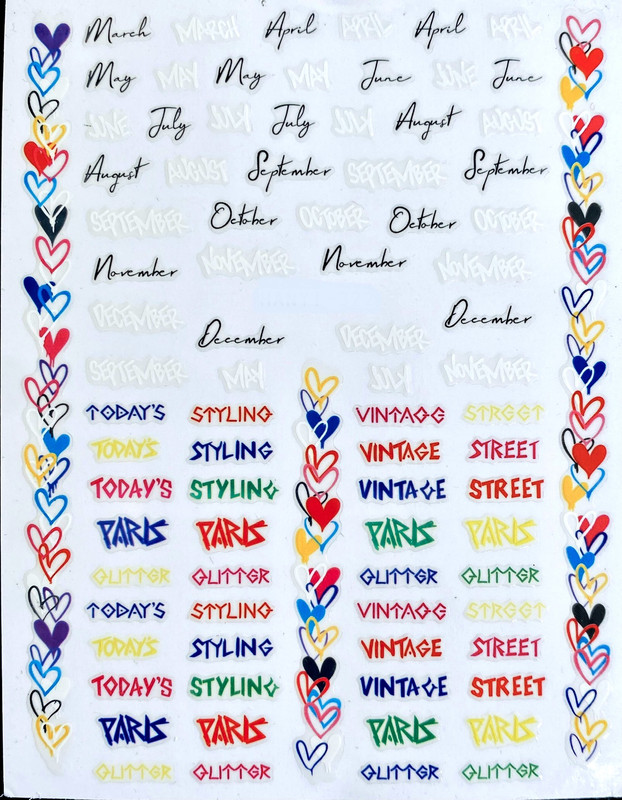 March MARCH April APRIL April APRIL
May MAY May MAY June JUNE June
JUNE July JULY July JULY August AUGUST
August AUGUST September SEPTEMBER September
SEPTEMBER October OCTOBER October OCTOBER
November NOVEMBER November NOVEMBER
DECEMBER December DECEMBER December
SEPTEMBER MAY JULY NOVEMBER
TODAY'S STYLING VINTAGE STREET
TODAY'S STYLING VINTAGE STREET
TODAY'S STYLING VINTAGE STREET
PARIS PARIS PARIS PARIS
GLITTER GLITTER GLITTER GLITTER
TODAY'S STYLING VINTAGE STREET
TODAY'S STYLING VINTAGE STREET
TODAY'S STYLING VINTAGE STREET
PARIS PARIS PARIS PARIS
GLITTER GLITTER GLITTER GLITTER